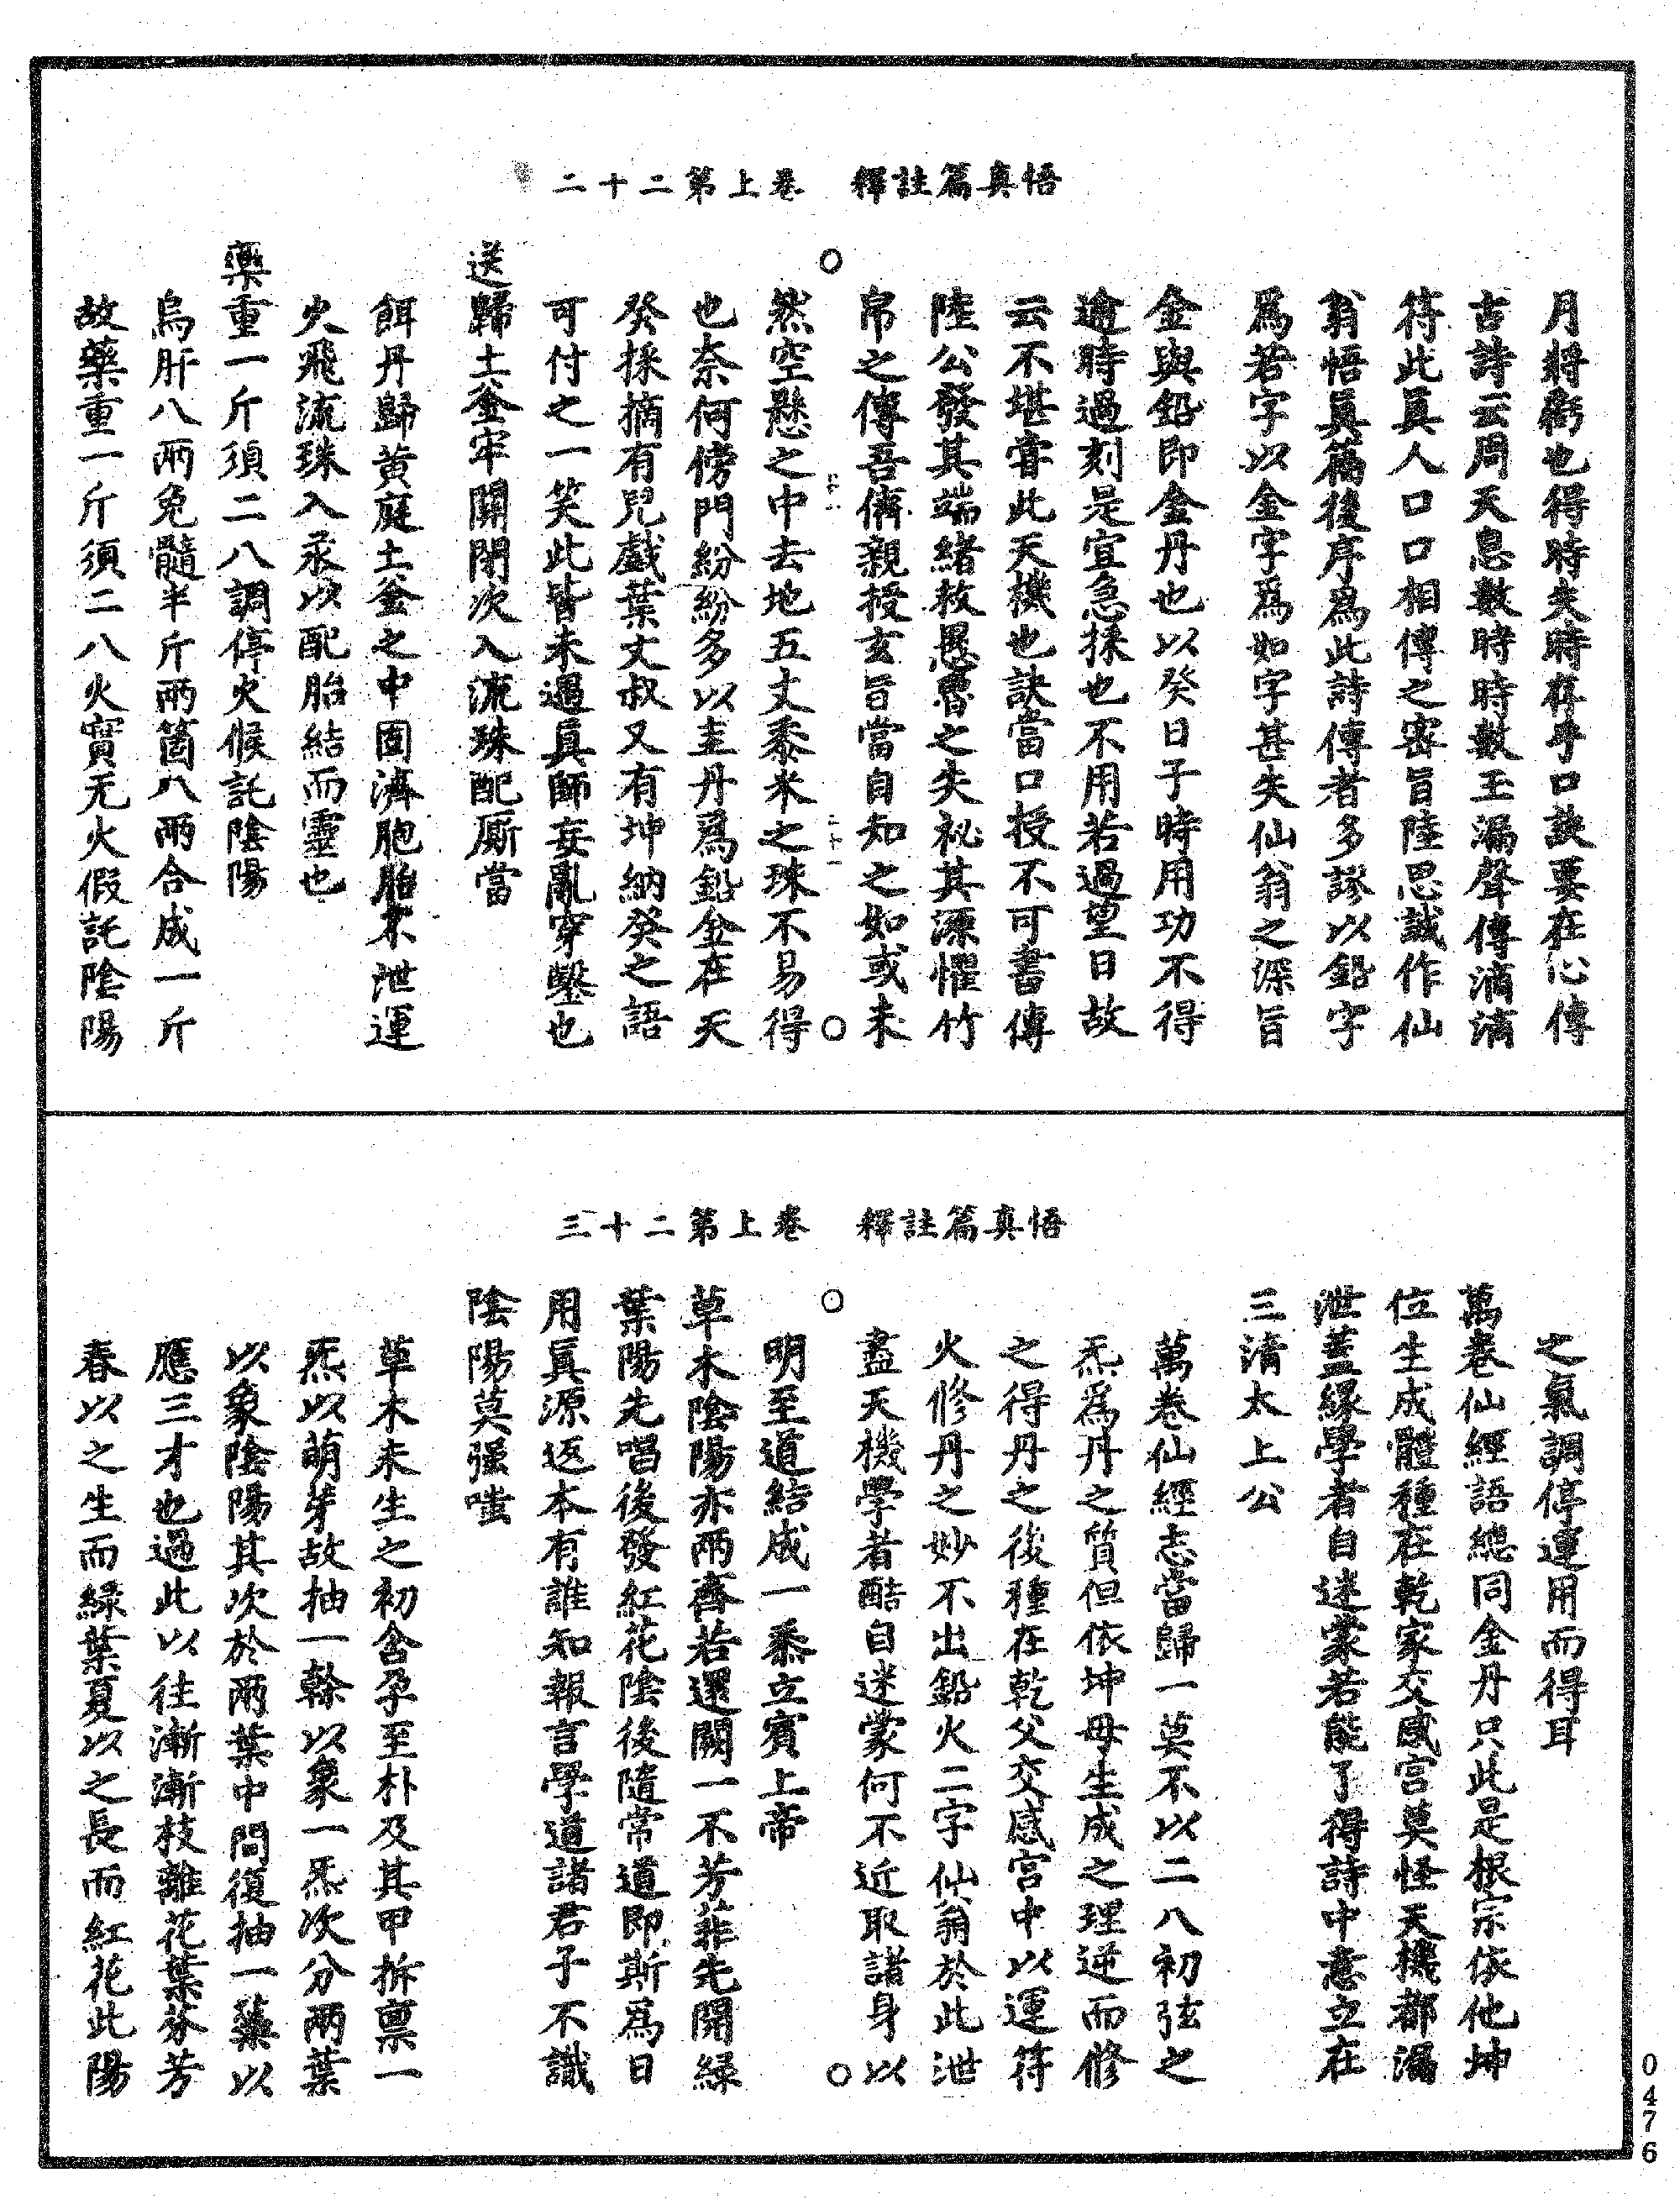 悟真篇註釋　卷上第二十二
月將虧也得時失時存乎口訣要在心傳
古詩云周天息數時時數玉漏聲傳滴滴
符此真人口口相傳之密旨陸思誠作仙
翁悟真篇後序為此詩傳者多謬以鉛字
為若字以金字為如字甚失仙翁之深旨
金與鉛即金丹也以癸日子時用功不得
逾時過刻是宜急採也不用若過望日故
云不堪嘗此天機也訣當口授不可書傳
陸公發其端緒救愚魯之失祕其源懼竹
帛之傳吾儕親授玄旨當自知之如或未
然空懸之中去地五丈黍米之珠不易得
也奈何傍門紛紛多以圭丹為鉛金在天
癸採摘有兒戲葉丈叔又有坤納癸之語
可付之一笑此皆未遇真師妄亂穿鑿也
送歸土釜牢關閉次入流珠配厮當
餌丹歸黃庭土釜之中固濟胞胎不泄運
火飛流珠入汞以配胎結而靈也
藥重一斤須二八調停火候託陰陽
烏肝八兩兔髓半斤兩箇八兩合成一斤
故藥重一斤須二八火實无火假託陰陽
悟真篇註釋　卷上第二十三
之氣調停運用而得耳
萬卷仙經語總同金丹只此是根宗依他坤
位生成體種在乾家交感宮莫怪天機都漏
泄蓋緣學者自迷蒙若能了得詩中意立在
三清太上公
萬卷仙經志當歸一莫不以二八初弦之
炁為丹之質但依坤母生成之理逆而修
之得丹之後種在乾父交感宮中以運符
火修丹之妙不出鉛火二字仙翁於此泄
盡天機學者酷自迷蒙何不近取諸身以
明至道結成一黍立賓上帝
草木陰陽亦兩齊若還闕一不芳菲先開綠
葉陽先唱後發紅花陰後隨常道即斯為日
用真源返本有誰知報言學道諸君子不識
陰陽莫强嗤
草木未生之初含孕至朴及其甲拆禀一
炁以萌芽故抽一榦以象一炁次分兩葉
以象陰陽其次於兩葉中間復抽一蘂以
應三才也過此以往漸漸枝離花葉芬芳
春以之生而綠葉夏以之長而紅花此陽
0476